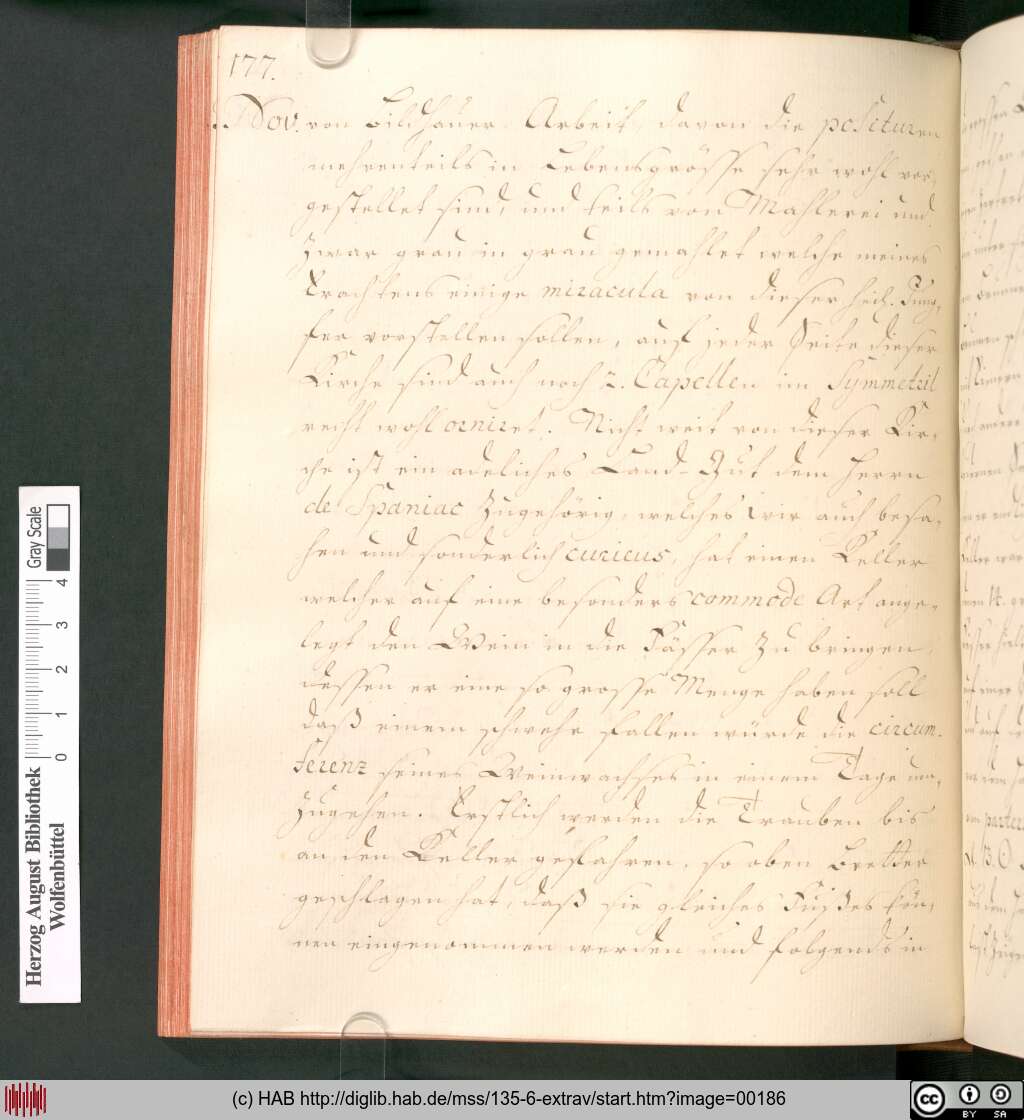 177.
Nov. von Bildhauer Arbeit, davon die posituren
mehrenteils in Lebensgrösse sehr wohl vor,
gestellet sind, und teils von Mahlerei und
zwar grau in grau gemahlet welche meines
Erachtens einige miracula von dieser heil. Jung,
fer vorstellen sollen, auf jeder Seite dieser
Kirche sind auch noch 2. Capellen im Symmetril
recht wohl orniret. Nicht weit von dieser Kir,
che ist ein adeliches Land-Gut dem Herrn
de Spaniac zugehörig, welches wir auch besa,
hen und sonderlich curieus, hat einen Keller
welcher auf eine besonders commode Art ange,
legt den Wein in die Fässer zu bringen,
dessen er eine so grosse Menge haben soll
daß einem schwehr fallen würde die circum,
ferenz seines Weinwachses in einem Tage um,
zugehen. Erstlich werden die Trauben bis
an den Keller gefahren, so oben Bretter
geschlagen hat, daß sie gleiches Fußes kön,
nen eingenommen werden und folgends in
Herzog August Bibliothek
Wolfenbüttel
0 1 2 3 4
Gray Scale
(c) HAB http://diglib.hab.de/mss/135-6-extrav/start.htm?image=00186
cc BY SA